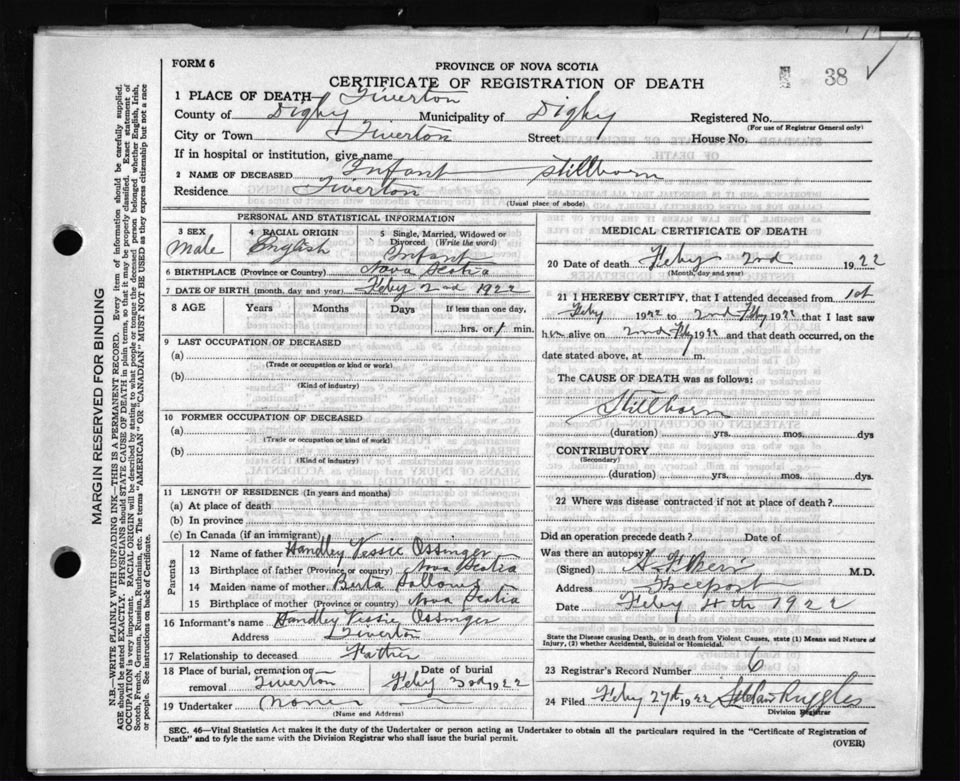 FORM 6
PROVINCE OF NOVA SCOTIA
CERTIFICATE OF REGISTRATION OF DEATH
38
1 PLACE OF DEATH Tiverton
County of Digby Municipality of Digby Registered No.
(For use of Registrar General only)
City or Town Tiverton Street House No.
If in hospital or institution, give name
2 NAME OF DECEASED Infant Stillborn
Residence Tiverton
(Usual place of abode)
PERSONAL AND STATISTICAL INFORMATION
3 SEX 4 RACIAL ORIGIN 5 Single, Married, Widowed or
Divorced (Write the word)
Male English Infant
6 BIRTHPLACE (Province or Country) Nova Scotia
7 DATE OF BIRTH (month, day and year) Feby 2nd 1922
8 AGE Years Months Days If less than one day,
hrs. or 1 min.
9 LAST OCCUPATION OF DECEASED
(a)
(Trade or occupation or kind or work)
(b)
(Kind of industry)
10 FORMER OCCUPATION OF DECEASED
(a)
(Trade or occupation or kind of work)
(b)
(Kind of industry)
11 LENGTH OF RESIDENCE (In years and months)
(a) At place of death
(b) In province
(c) In Canada (if an immigrant)
Parents
12 Name of father Handley Vessie Ossinger
13 Birthplace of father (Province or country) Nova Scotia
14 Maiden name of mother Berta
15 Birthplace of mother (Province or country) Nova Scotia
16 Informant's name Handley Vessie Ossinger
Address Tiverton
17 Relationship to deceased Father
18 Place of burial, cremation or Date of burial
removal Tiverton Feby 3rd 1922
19 Undertaker none
(Name and Address)
MEDICAL CERTIFICATE OF DEATH
20 Date of death Feby 2nd 1922
(Month, day and year)
21 I HEREBY CERTIFY, that I attended deceased from 1st
Feby 1922 to 2nd Feby 1922 that I last saw
him alive on 2nd Feby 1922 and that death occurred, on the
date stated above, at m.
The CAUSE OF DEATH was as follows:
Stillborn
(duration) yrs. mos. dys
CONTRIBUTORY
(Secondary)
(duration) yrs. mos. dys
22 Where was disease contracted if not at place of death?
Did an operation precede death? Date of
Was there an autopsy?
(Signed) M.D.
Address Freeport
Date Feby 4th 1922
State the Disease causing Death, or in death from Violent Causes, state (1) Means and Nature of
Injury, (2) whether Accidental, Suicidal or Homicidal.
23 Registrar's Record Number 6
24 Filed Feby 27th 1922 Ruggles
Division Registrar
SEC. 46—Vital Statistics Act makes it the duty of the Undertaker or person acting as Undertaker to obtain all the particulars required in the "Certificate of Registration of
Death" and to fyle the same with the Division Registrar who shall issue the burial permit.
(OVER)
MARGIN RESERVED FOR BINDING
N.B.—WRITE PLAINLY WITH UNFADING INK—THIS IS A PERMANENT RECORD. Every item of information should be carefully supplied.
AGE should be stated EXACTLY. PHYSICIANS should STATE CAUSE OF DEATH in plain terms, so that it may be properly classified. Exact statement of
OCCUPATION is very important. RACIAL ORIGIN will be described by stating to what people or tongue the deceased person belonged whether English, Irish,
Scotch, French, German, Russian, Ruthenian, etc. The terms "AMERICAN" OR "CANADIAN" MUST NOT BE USED as they express citizenship but not a race
or people. See instructions on back of Certificate.